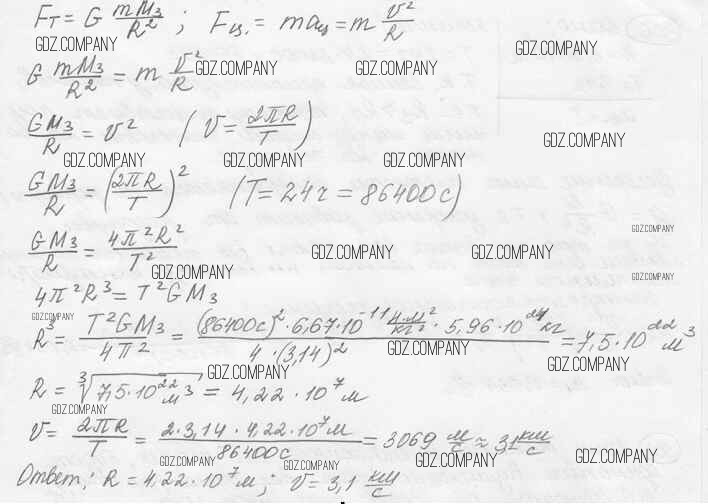 Fт = G mMз/R² ; Fц. = maц = m v²/R
GDZ.COMPANY GDZ.COMPANY
G mMз/R² = m v²/R GDZ.COMPANY GDZ.COMPANY
GMз/R = v² (v = 2πR/T) GDZ.COMPANY
GDZ.COMPANY GDZ.COMPANY GDZ.COMPANY
GMз/R = (2πR/T)² (T = 24ч = 86400с)
GDZ.COMPANY
GMз/R = 4π²R²/T² GDZ.COMPANY GDZ.COMPANY
GDZ.COMPANY GDZ.COMPANY
4π²R³ = T²GMз
GDZ.COMPANY
R³ = T²GMз/4π² = (86400с)² · 6,67·10⁻¹¹ Н·м²/кг² · 5,96·10²⁴кг/4·(3,14)² = 7,5·10²² м³
GDZ.COMPANY GDZ.COMPANY
GDZ.COMPANY
R = ³√7,5·10²² м³ = 4,22 · 10⁷ м
GDZ.COMPANY
v = 2πR/T = 2·3,14·4,22·10⁷м/86400с = 3069 м/с ≈ 3,1 км/с
GDZ.COMPANY GDZ.COMPANY GDZ.COMPANY GDZ.COMPANY
Ответ: R = 4,22·10⁷м; v = 3,1 км/с